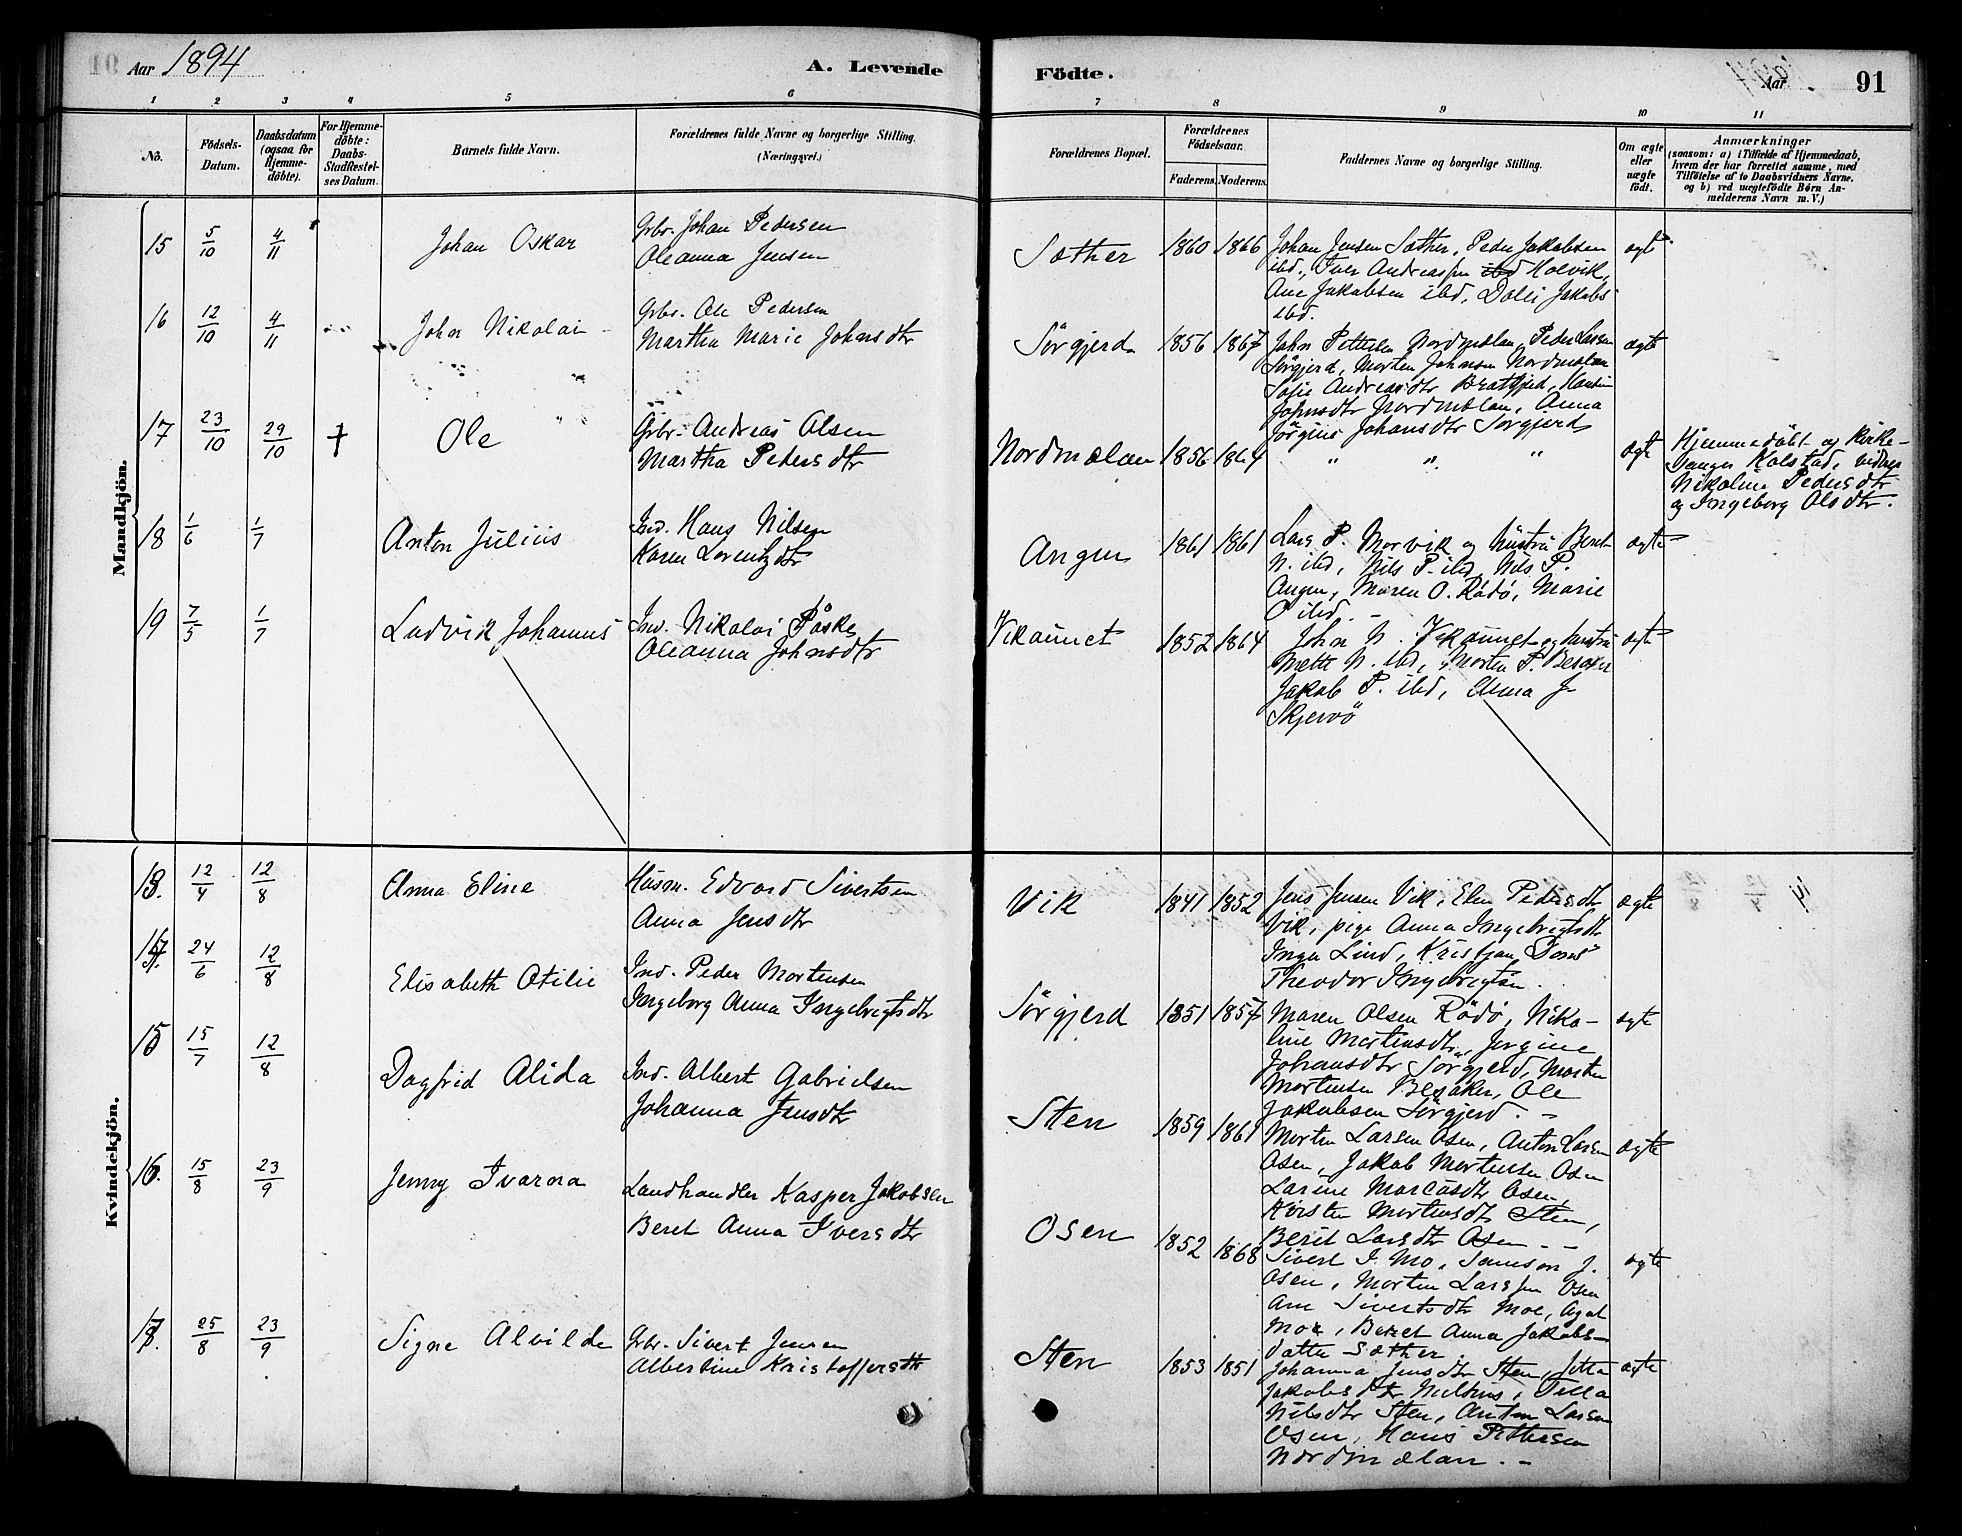 Aar 1894
A. Levende
Födte.
Aar
91
1 2 3 4 5 6
7 8 9 10 11
No.
Födsels-
Datum.
Daabsdatum
(ogsaa for
Hjemme-
döbte).
For Hjemme-
döbte:
Daabs-
Stadfæstel-
ses Datum.
Barnets fulde Navn.
Forældrenes fulde Navne og borgerlige Stilling.
(Næringsvei.)
Forældrenes Bopæl.
Forældrenes
Födselsaar.
Faderens. Moderens.
Faddernes Navne og borgerlige Stilling.
Om ægte
eller
uægte
født.
Anmærkninger
(saasom: a) i Tilfælde af Hjemmedaab,
hvem der har forrettet samme, med
Tilföielse af to Daabsvidners Navne.
og b) ved uægtefödte Börn An-
melderens Navn m.V.)
Mandkjön.
15 5/10 4/11 Johan Oskar
Gbr. Johan Pedersen
Oleanna Jensen
Sæther 1860 1866
Johan Jensen Sæther, Peder Jakobsen
ibd., Iver Andreassen ibd Holvik,
Ane Jakobsen ibd, Jakobs
ibd.
ægte
16 12/10 4/11 John Nikolai
Gbr. Ole Pedersen
Martha Marie Johnsdtr
Sörgjerd 1856 1867
John Pettersen Nordmelan, Peder Larsen
Sörgjerd, Morten Johnsen Nordmelan
Sofie Andreasdtr Brattjerd,
Johnsdtr Nordmelan, Anna
Jörgine Johansdtr Sörgjerd
ægte
17 23/10 29/10 + Ole
Gbr. Andreas Olsen
Martha Pedersdtr
Nordmelan 1856 1864
" " "
ægte
Hjemmedöbt af Kirke-
sanger Kolstad, vidner
Nikoline Pedersdtr
og Ingeborg Olsdtr.
18 1/6 1/7 Anton Julius
Ind. Hans Nilsen
Karen Lorentzdtr
Angen 1861 1861
Lars P. Morvik og hustru Beret
N. ibd, Nils P. ibd, Nils P.
Angen, Maren O. Rödö, Marie
O ibd. -
ægte
19 7/5 1/7 Ludvik Johannes
Ind. Nikolai Påske
Oleanna Johnsdtr
Vikaunet 1852 1864
John N. Vikaunet og hustru
Mette N. ibd, Morten P. Besaker
Jakob P. ibd, Anna J-
Skjervö
ægte
Kvindekjön.
13. 12/4 12/8 Anna Eline
Husm. Edvard Sivertsen
Anna Jensdtr
Vik 1841 1852
Jens Jensen Vik, Elen Pedersdtr
Vik, pige Anna Ingebrigtsdtr
Inga Lind, Kristjan
Theodor Ingebrigtsen.
ægte
14. 24/6 12/8 Elisabeth Otilie
Ind. Peder Mortensen
Ingeborg Anna Ingebrigtsdtr
Sörgjerd 1851 1857
Maren Olsen Rödö, Niko-
line Mortensdtr, Jörgine
Johansdtr Sörgjerd, Morten
Mortensen Besaker, Ole
Jakobsen Sörgjerd. -
ægte
15 15/7 12/8 Dagfrid Alida
Ind. Albert Gabrielsen
Johanna Jensdtr
Sten 1859 1861
Morten Larsen Osen, Anton Larsen
Osen, Jakob Mortensen Osen
Larine Marcusdtr Osen,
Kirsten Mortensdtr Sten,
Berit Larsdtr Osen - -
ægte
16. 15/8 23/9 Jenny Ivarna
Landhandler Kasper Jakobsen
Beret Anna Iversdtr
Osen 1852 1868
Sivert I. Mo, Samson J.
Osen, Morten Larssen Osen
Ane Sivertsdtr Moe, Agat
Moe, Beret Anna Jakobs-
datter Sæther
ægte
17. 25/8 23/9 Signe Alvilde
Gbr. Sivert Jensen
Albertine Kristoffersdtr
Sten 1853 1851
Johanna Jensdtr Sten, Jetta
Jakobsdtr
Nilsdtr Sten, Anton Larsen
Osen, Hans Pettersen
Nordmelan. -
ægte